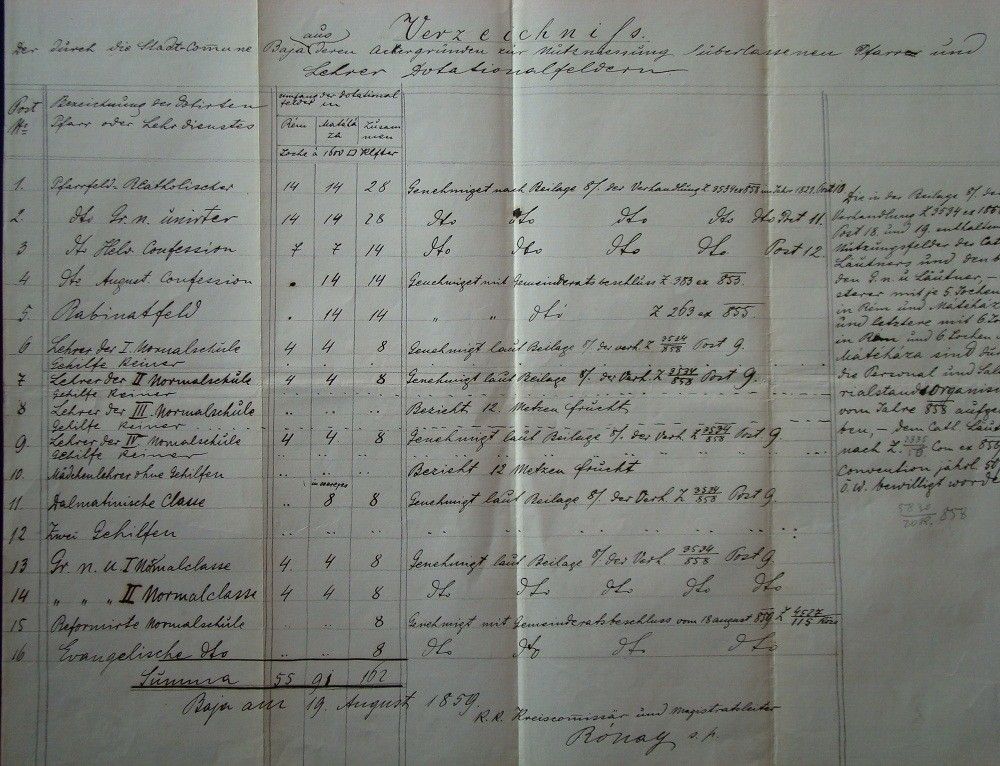 Verzeichniss.
der durch die Stadt-Comune Baja aus deren Ackergründen zur Nutzniessung überlassenen Pfarr und
Lehrer Dotationalfeldern
Post Nr. Bezeichnung des Dotirten Pfarr oder Lehrdienstes
umfang der dotational felder in
Rém Matéháza Zusammen
Joche á 1600 □ Klfter
1. Pfarrfeld RCatholischer 14 14 28 Genehmiget nach Beilage 8/. der Verhandlung Z 3534 ex 858 im Jahr 1829. Post 10
2. dto Gr. n. unirter 14 14 28 dto dto dto dto dto Post 11.
3 dto Helv. Confession 7 7 14 dto dto dto dto Post 12.
4 dto August. Confession . 14 14 Genehmiget mit Gemeinderatsbeschluss Z 383 ex 853.
5. Rabinatfeld . 14 14 " " dto Z 263 ex 855.
6 Lehrer der I. Normalschule 4 4 8 Genehmigt laut Beilage 8/. der Verh. Z 3534/858 Post 9.
Gehilfe keiner
7 Lehrer der II Normalschule 4 4 8 Genehmigt laut Beilage 8/. der Verh. Z 3534/858 Post 9.
Gehilfe keiner
8 Lehrer der III Normalschule .. .. .. Bezieht 12. Metzen frucht
Gehilfe keiner
9. Lehrer der IV Normalschule 4 4 8 Genehmigt laut Beilage 8/. der Verh. Z 3534/858 Post 9
Gehilfe keiner
10. Mädchenlehrer ohne Gehilfen .. .. .. Bezieht 12 Metzen frucht
11 Dalmatinische Classe .. 8 8 Genehmigt laut Beilage 8/. der Verh. Z 3534/858 Post 9.
12 Zwei Gehilfen .. .. ..
13 Gr. n. u I Normalclasse 4. 4 8 Genehmigt laut Beilage 8/. der Verh. 3534/858 Post 9.
14 " " " II Normalclasse 4 4 8 dto dto dto dto dto
15 Reformirte Normalschule .. .. 8 Genehmigt mit Gemeinderatsbeschluss vom 18 august 859 Z 4527/115
16 Evangelische dto .. .. 8 dto dto dto dto
Summa 55 91 162
Baja am 19. August 1859
K. K. Kreiscomissär und Magistratsleiter
Rónay s.p.
Die in der Beilage 8/ der
Verhandlung Z 3534 ex
Post 18. und 19. enthalten
Nützungsfelder des
Läutners und
den G. n. u Läutner, –
sterer mit je 5. Jochen
in Rém und Matéház
und letztere mit 6
in Rem und 6 Jochen
Matéháza sind
die Personal und
rialstands Organis
vom Jahre 858 aufge
ben, – dem Cath Läut
nach Z. Con ex
Convention jährl.
Ö.W. bewilligt worde
858